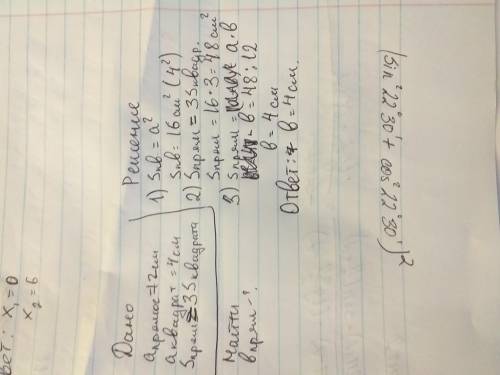 вет: x₁ = 0
x₂ = 6
Дано
a прямоуг = 12 см
a квадрат = 4 см
S прям = 3 S квадрата
Найти
в прям - ?
Решение
1) Sкв = a²
Sкв = 16 см² (4²)
2) Sпрям = 3 S квадр.
Sпрям = 16 · 3 = 48 см²
3) Sпрям = a · в
в = 48 : 12
в = 4 см
Ответ: в = 4 см.
(sin² 22° 30' + cos² 22° 30')²